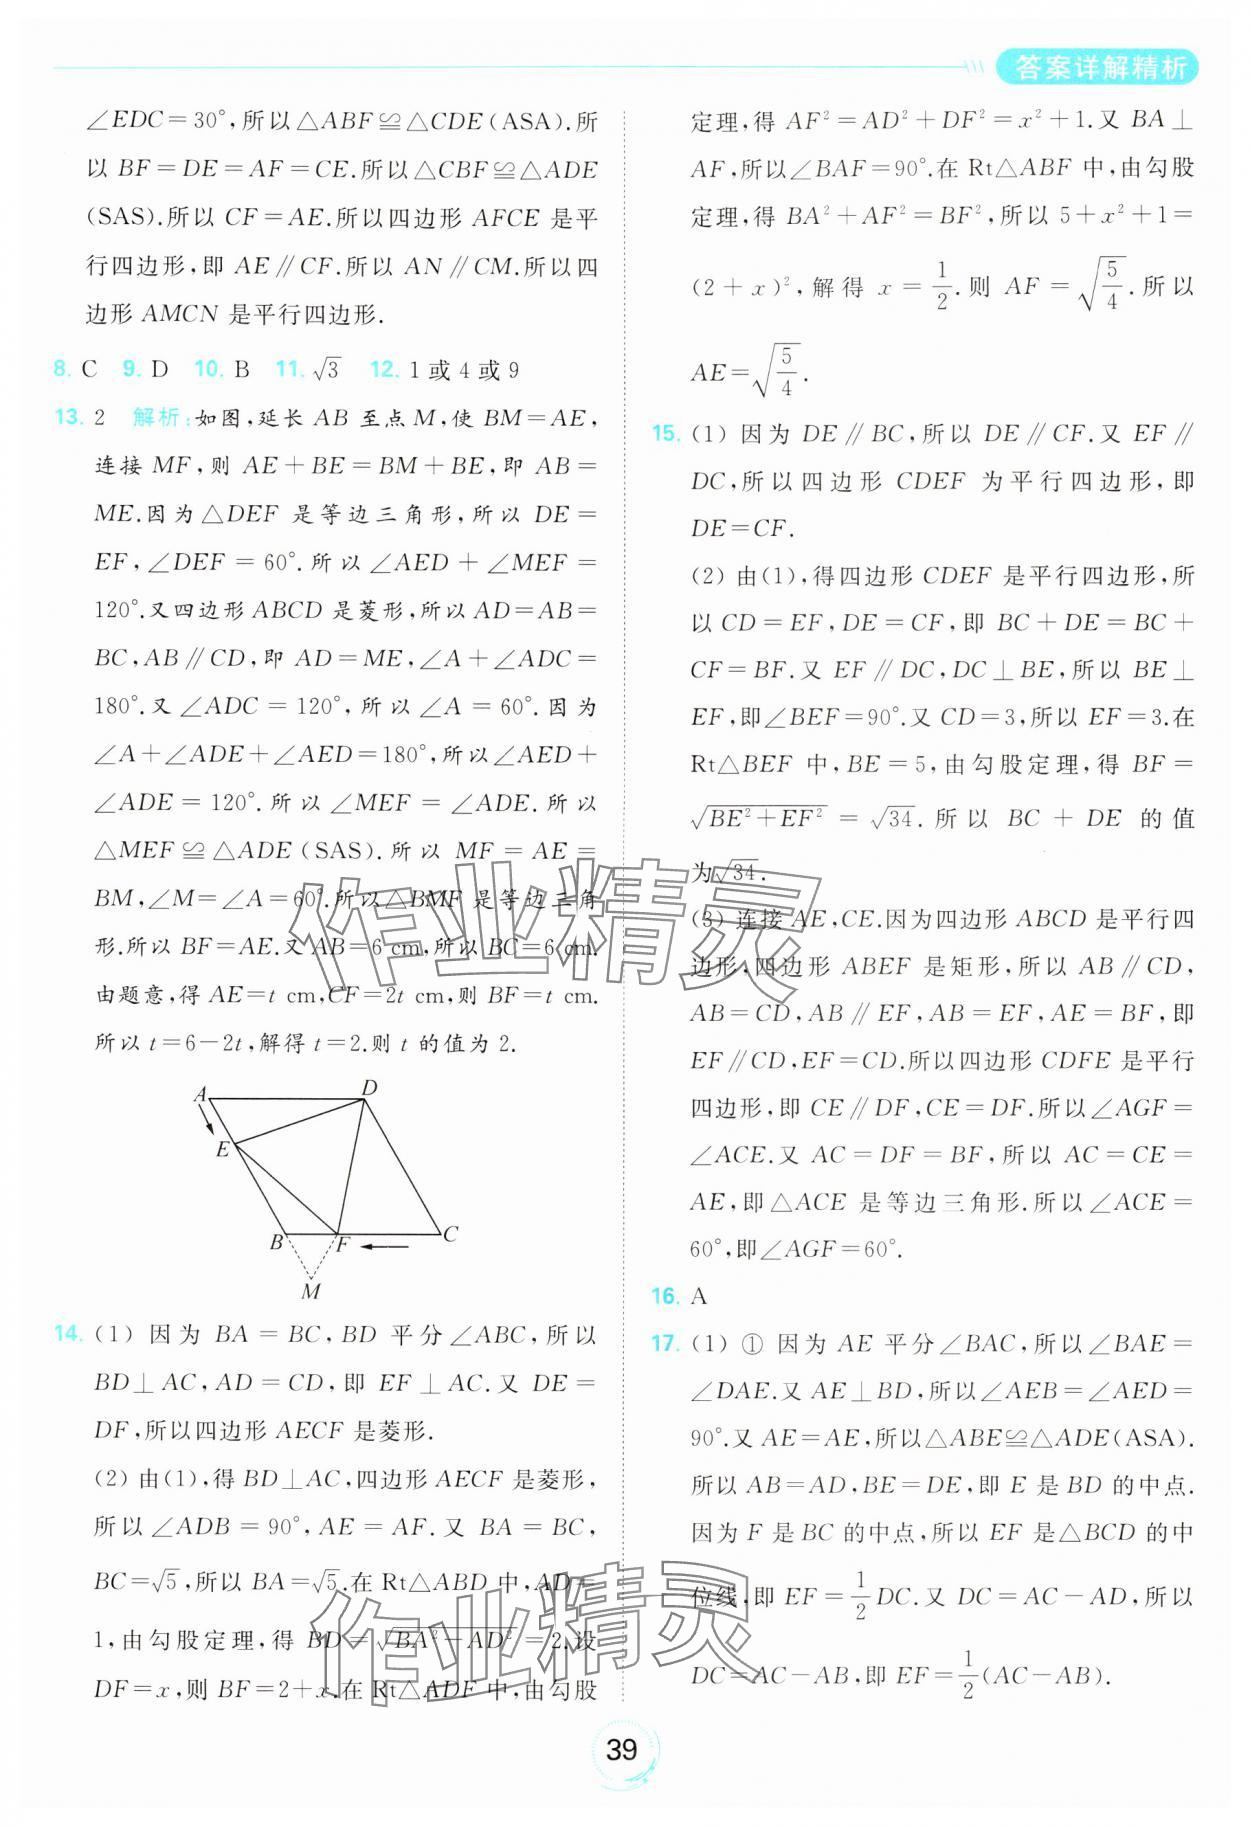 答案详解精析
∠EDC=30°,所以△ABF≌△CDE(ASA).所
以 BF=DE=AF=CE.所以△CBF≌△ADE
(SAS).所以 CF=AE.所以四边形 AFCE 是平
行四边形,即 AE∥CF.所以 AN∥CM.所以四
边形 AMCN 是平行四边形.
8. C 9. D 10. B 11. √3 12. 1 或 4 或 9
13. 2 解析:如图,延长 AB 至点 M,使 BM=AE,
连接 MF,则 AE+BE=BM+BE,即 AB=
ME.因为△DEF 是等边三角形,所以 DE=
EF,∠DEF=60°.所以∠AED+∠MEF=
120°.又四边形 ABCD 是菱形,所以 AD=AB=
BC,AB∥CD,即 AD=ME,∠A+∠ADC=
180°.又∠ADC=120°,所以∠A=60°.因为
∠A+∠ADE+∠AED=180°,所以∠AED+
∠ADE=120°.所以∠MEF=∠ADE.所以
△MEF≌△ADE(SAS).所以 MF=AE=
BM,∠M=∠A=60°.所以△BMF 是等边三角
形.所以 BF=AE.又 AB=6 cm,所以 BC=6 cm.
由题意,得 AE=t cm,CF=2t cm,则 BF=t cm.
所以 t=6-2t,解得 t=2.则 t 的值为 2.
A D
E
B F C
M
14. (1) 因为 BA=BC,BD 平分∠ABC,所以
BD⊥AC,AD=CD,即 EF⊥AC.又 DE=
DF,所以四边形 AECF 是菱形.
(2) 由(1),得 BD⊥AC,四边形 AECF 是菱形,
所以∠ADB=90°,AE=AF.又 BA=BC,
BC=√5,所以 BA=√5.在 Rt△ABD 中,AD=
1,由勾股定理,得 BD=√(BA²-AD²)=2.设
DF=x,则 BF=2+x.在 Rt△ADF 中,由勾股
定理,得 AF²=AD²+DF²=x²+1.又 BA⊥
AF,所以∠BAF=90°.在 Rt△ABF 中,由勾股
定理,得 BA²+AF²=BF²,所以 5+x²+1=
(2+x)²,解得 x=1/2.则 AF=√(5/4).所以
AE=√(5/4).
15. (1) 因为 DE∥BC,所以 DE∥CF.又 EF∥
DC,所以四边形 CDEF 为平行四边形,即
DE=CF.
(2) 由(1),得四边形 CDEF 是平行四边形,所
以 CD=EF,DE=CF,即 BC+DE=BC+
CF=BF.又 EF∥DC,DC⊥BE,所以 BE⊥
EF,即∠BEF=90°.又 CD=3,所以 EF=3.在
Rt△BEF 中,BE=5,由勾股定理,得 BF=
√(BE²+EF²)=√34.所以 BC+DE 的值
为√34.
(3) 连接 AE,CE.因为四边形 ABCD 是平行四
边形,四边形 ABEF 是矩形,所以 AB∥CD,
AB=CD,AB∥EF,AB=EF,AE=BF,即
EF∥CD,EF=CD.所以四边形 CDFE 是平行
四边形,即 CE∥DF,CE=DF.所以∠AGF=
∠ACE.又 AC=DF=BF,所以 AC=CE=
AE,即△ACE 是等边三角形.所以∠ACE=
60°,即∠AGF=60°.
16. A
17. (1) ① 因为 AE 平分∠BAC,所以∠BAE=
∠DAE.又 AE⊥BD,所以∠AEB=∠AED=
90°.又 AE=AE,所以△ABE≌△ADE(ASA).
所以 AB=AD,BE=DE,即 E 是 BD 的中点.
因为 F 是 BC 的中点,所以 EF 是△BCD 的中
位线,即 EF=1/2DC.又 DC=AC-AD,所以
DC=AC-AB,即 EF=1/2(AC-AB).
作业精灵
作业精灵
39